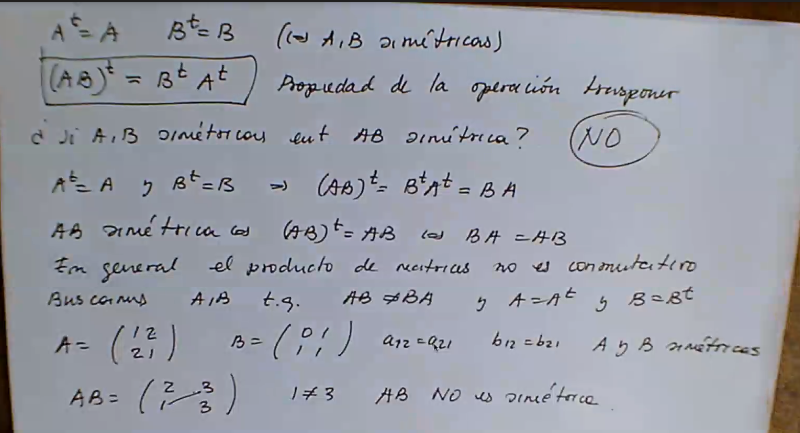 Aᵗ = A Bᵗ = B (⇔ A, B simétricas)
(AB)ᵗ = Bᵗ Aᵗ Propiedad de la operación trasponer
¿ Si A, B simétricas ent AB simétrica? NO
Aᵗ = A y Bᵗ = B ⇒ (AB)ᵗ = BᵗAᵗ = BA
AB simétrica ⇔ (AB)ᵗ = AB ⇔ BA = AB
En general el producto de matrices no es conmutativo
Buscamos A, B t.q. AB ≠ BA y A = Aᵗ y B = Bᵗ
A = (1 2; 2 1) B = (0 1; 1 1) a₁₂ = a₂₁ b₁₂ = b₂₁ A y B simétricas
AB = (2 3; 1 3) 1 ≠ 3 AB NO es simétrica